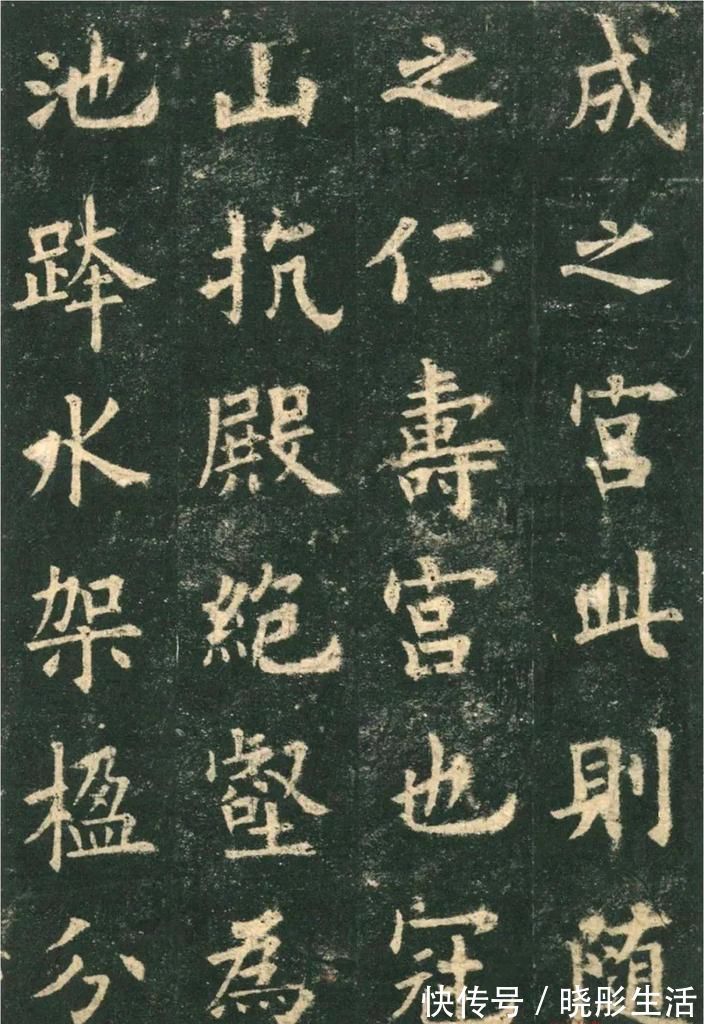 成之宫此則随
之仁壽宫也冠
山抗殿絶壑為
池跨水架楹分
快传号/晓彤生活